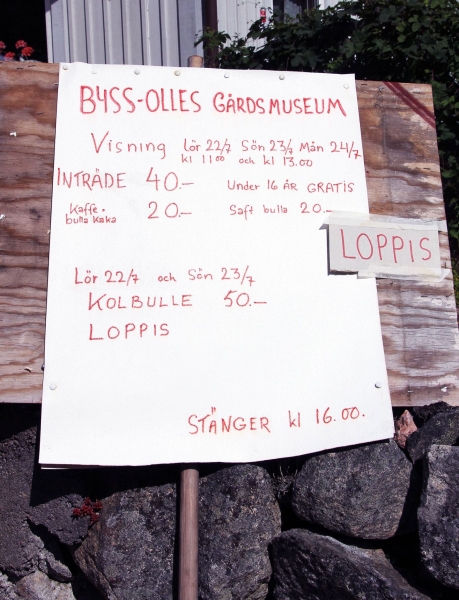 BYSS-OLLES GÅRDSMUSEUM
Visning Lör 22/7 Sön 23/7 Mån 24/7
kl 11 00 och kl 13.00
INTRÄDE 40.- Under 16 ÅR GRATIS
Kaffe. 20.- Saft bulla 20.-
bulla kaka
LOPPIS
Lör 22/7 och Sön 23/7
KOLBULLE 50.-
LOPPIS
STÄNGER kl 16.00.